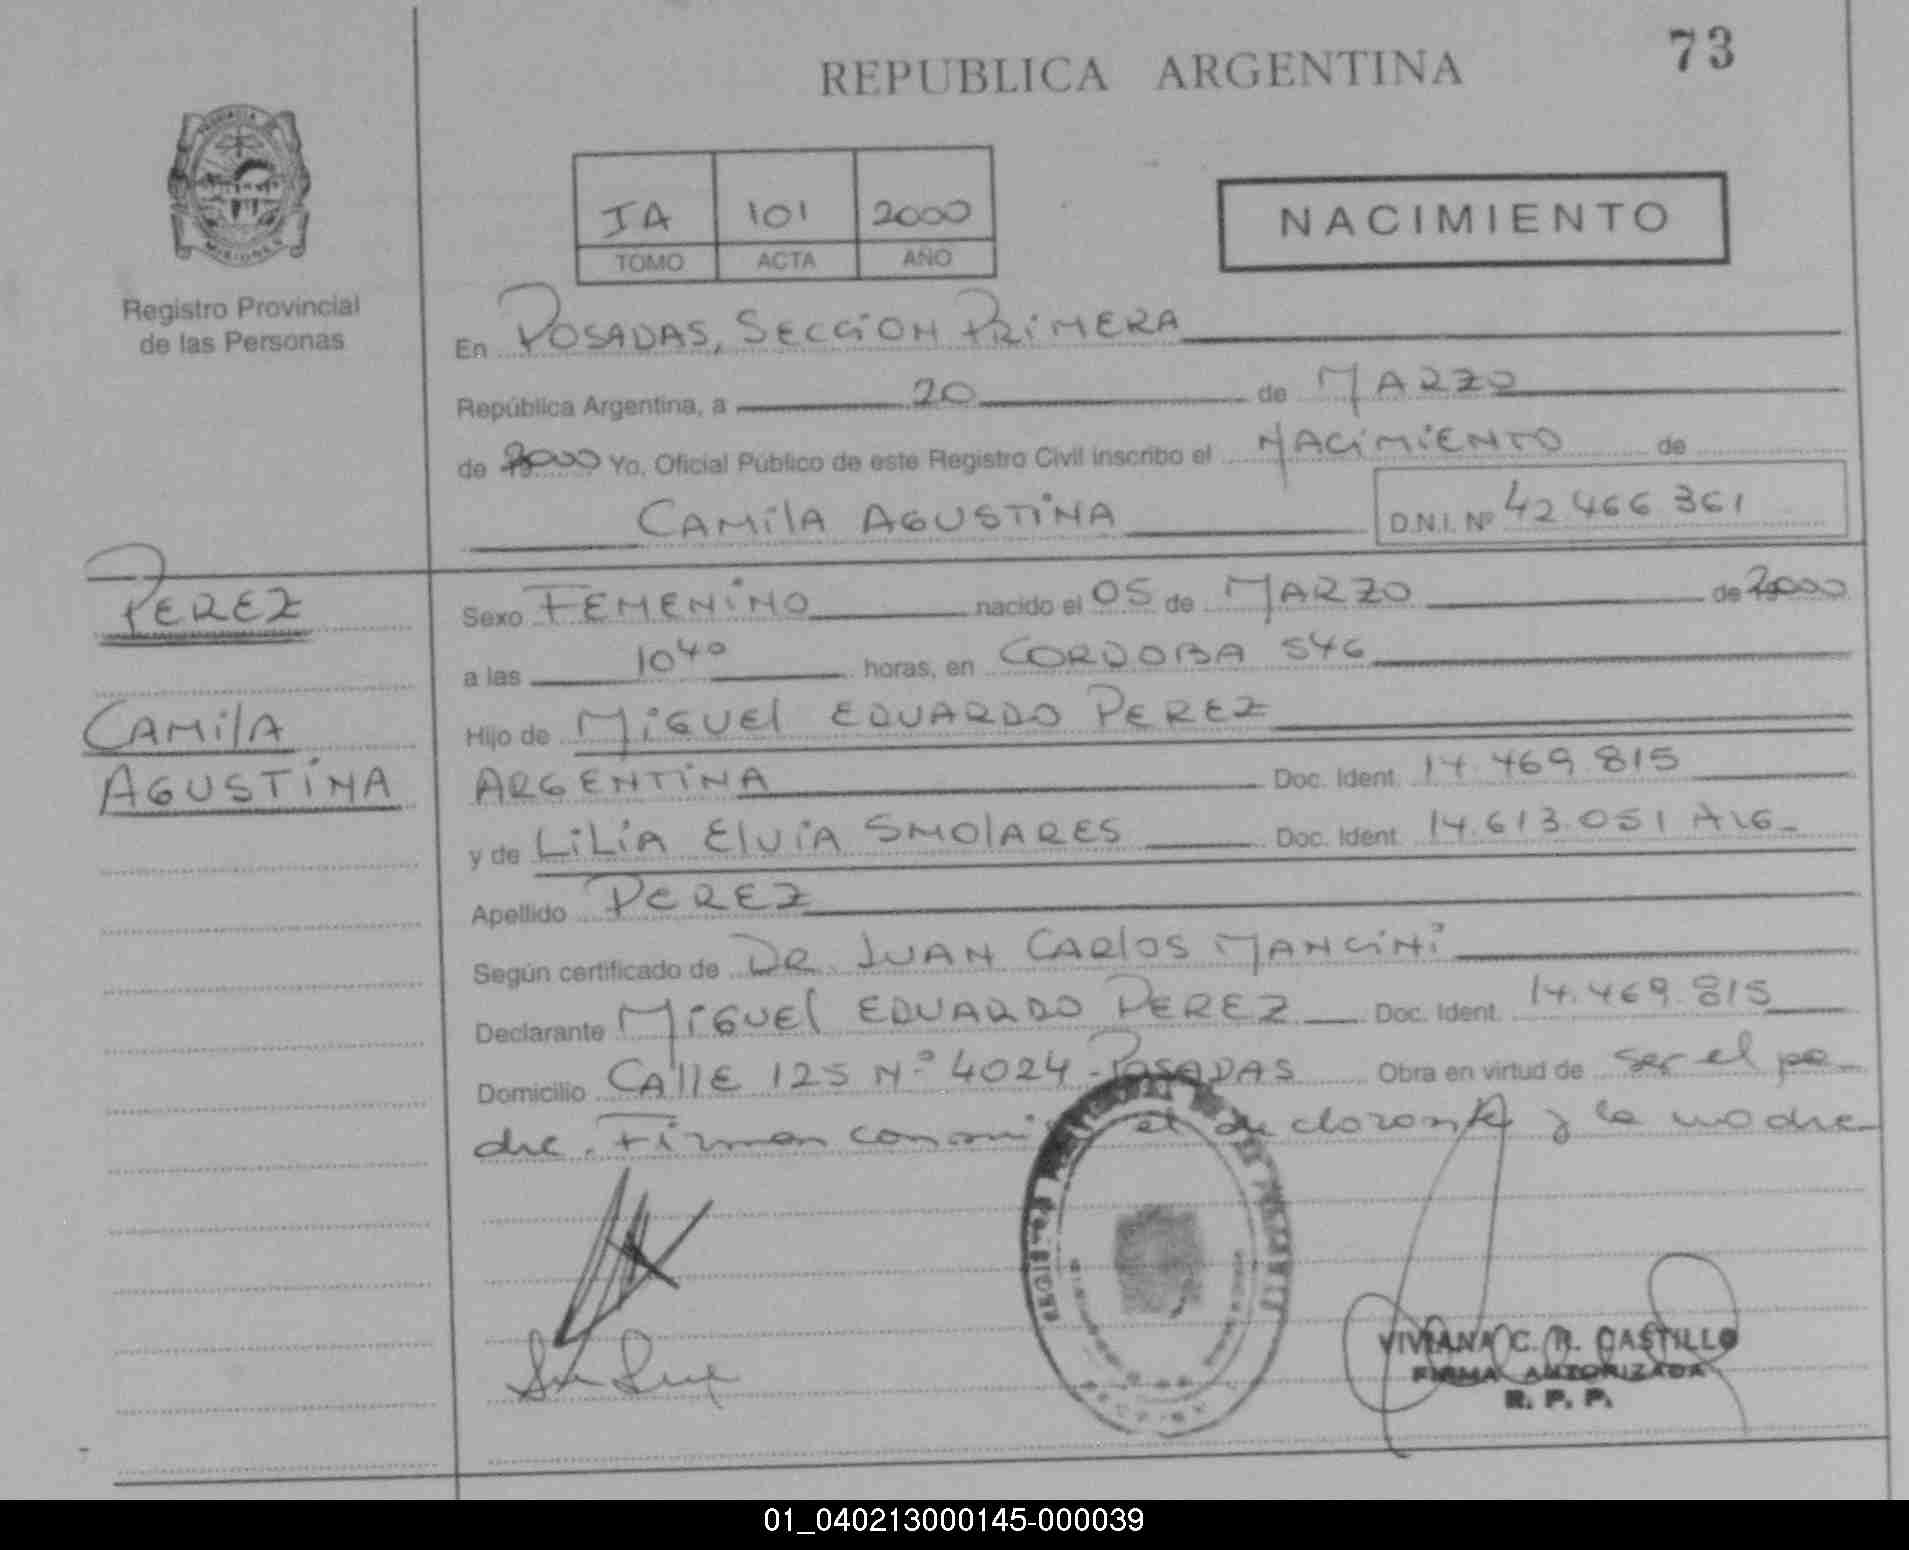 73
REPUBLICA ARGENTINA
IA 101 2000
TOMO ACTA AÑO
NACIMIENTO
MISIONES
Registro Provincial
de las Personas
En POSADAS, SECCION PRIMERA
República Argentina, a 20 de MARZO
de 2000 Yo, Oficial Público de este Registro Civil inscribo el NACIMIENTO de
CAMILA AGUSTINA D.N.I. Nº 42 466 361
PEREZ
CAMILA
AGUSTINA
Sexo FEMENINO nacido el 05 de MARZO de 2000
a las 10⁴⁰ horas, en CORDOBA 546
Hijo de MIGUEL EDUARDO PEREZ
ARGENTINA Doc. Ident. 14.469.815
y de LILIA ELVIA SMOLARES Doc. Ident. 14.613.051 ARG-
Apellido PEREZ
Según certificado de DR. JUAN CARLOS MANCINI
Declarante MIGUEL EDUARDO PEREZ Doc. Ident. 14.469.815
Domicilio CALLE 125 Nº 4024-POSADAS Obra en virtud de ser el pa-
dre. Firman conmigo el declarante y la madre-
VIVIANA C. R. CASTILLO
FIRMA AUTORIZADA
R. P. P.
01_040213000145-000039